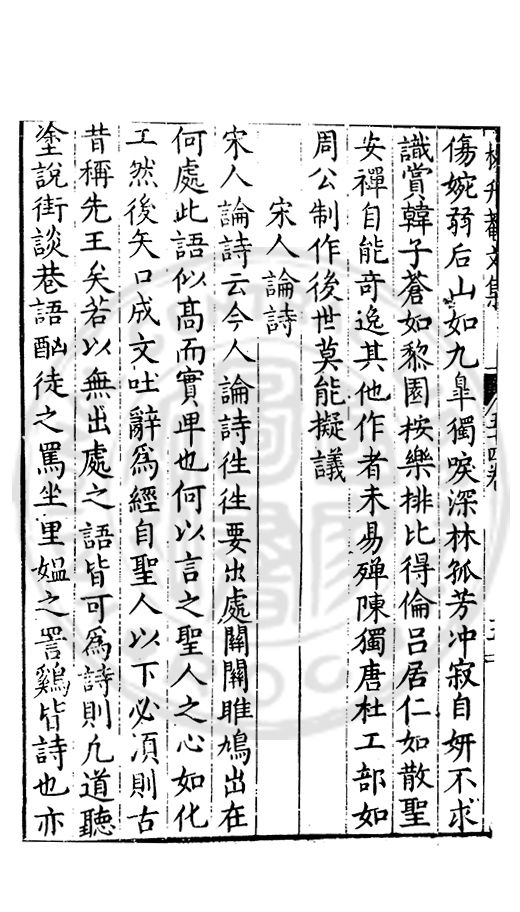 楊升菴文集
五十四卷
傷婉弱后山如九臯獨唳深林孤芳冲寂自妍不求
識賞韓子蒼如黎園桉樂排比得倫呂居仁如散聖
安禪自能奇逸其他作者未易殫陳獨唐杜工部如
周公制作後世莫能擬議
宋人論詩
宋人論詩云今人論詩徃徃要出處關關雎鳩出在
何處此語似髙而實卑也何以言之聖人之心如化
工然後矢口成文吐辭爲經自聖人以下必湏則古
昔稱先王矣若以無出處之語皆可爲詩則凢道聽
塗說街談巷語酗徒之罵坐里媪之詈鷄皆詩也亦